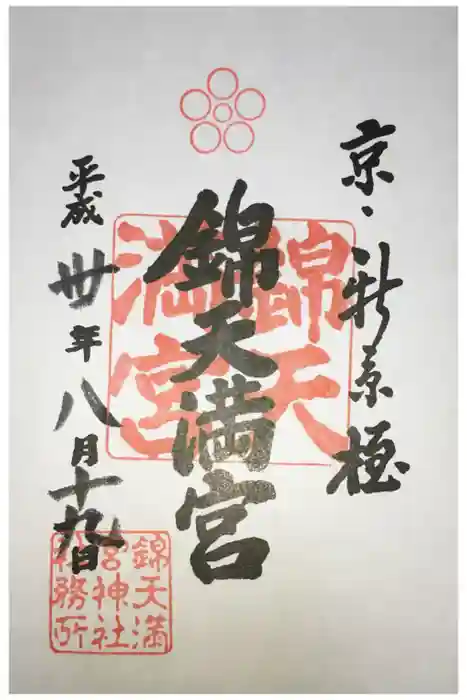 京・新京極
錦天満宮
錦天
満宮
平成卅年八月十九日
錦天満
宮神社
務所